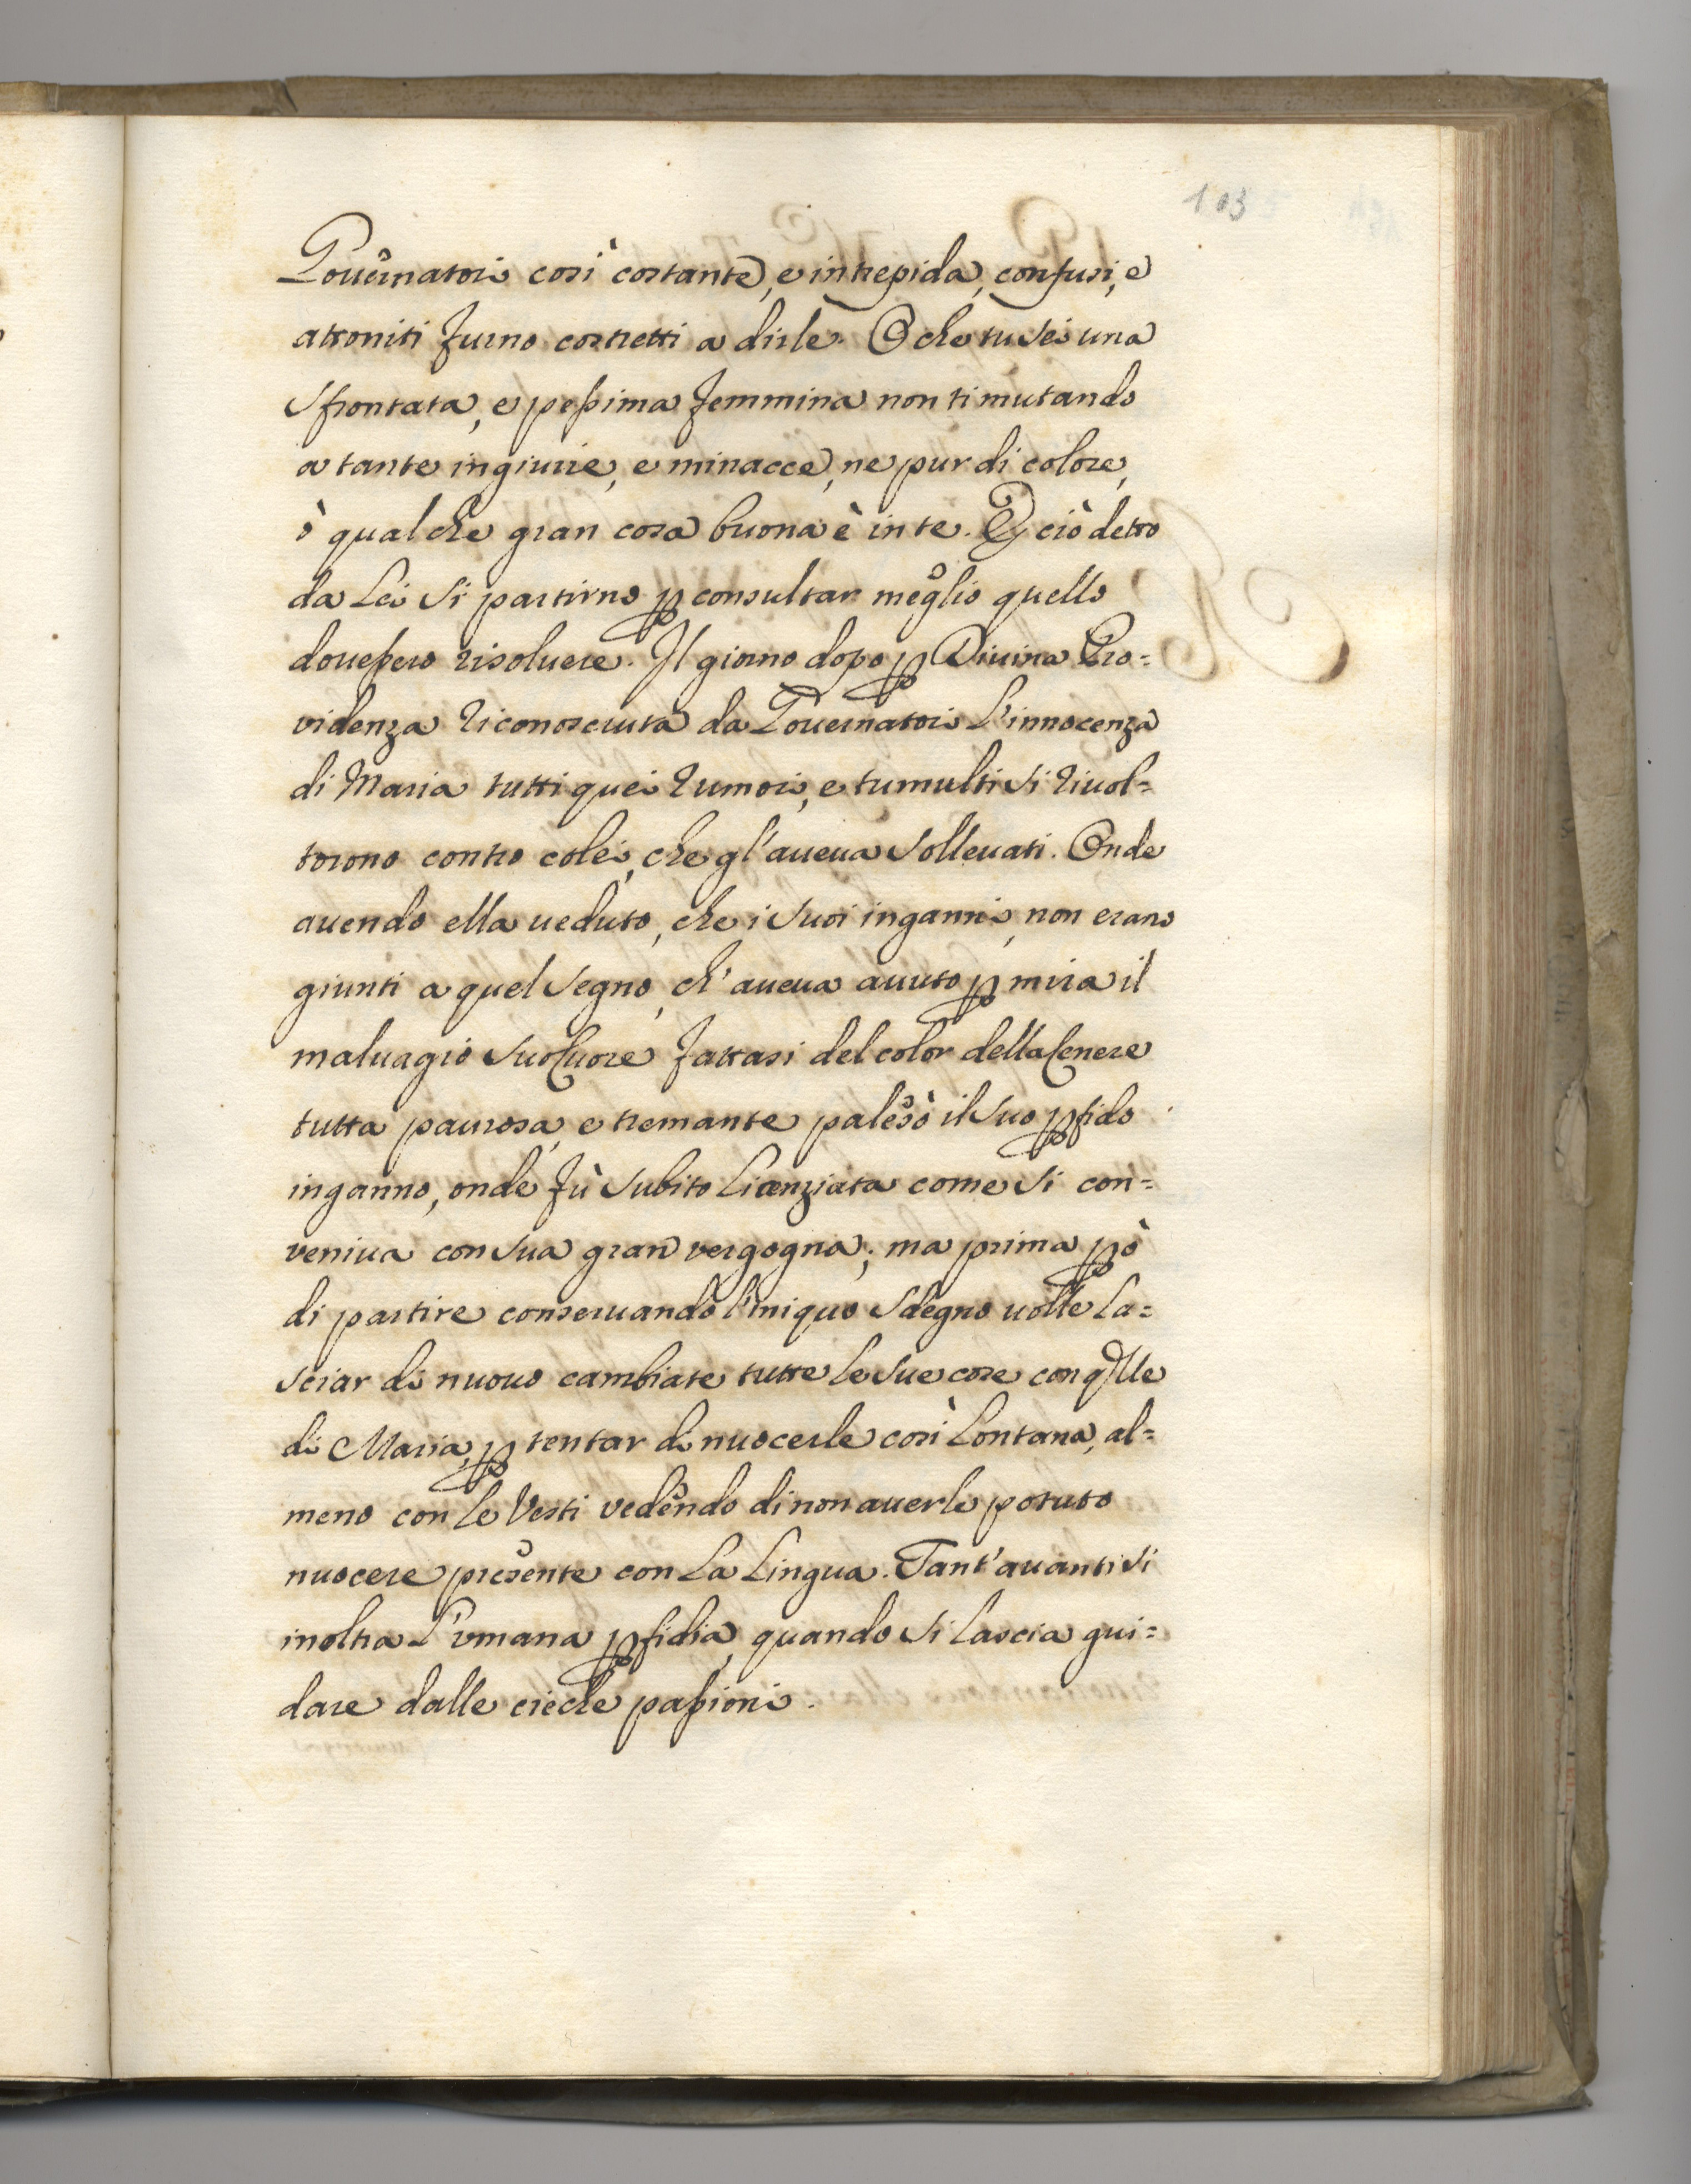 103
Gouernatori così costante, e intrepida, confusi, e
attoniti furno costretti a dirle. O che tu sei una
sfrontata, e peßima femmina non ti mutando
a tante ingiurie, e minacce, ne pur di colore,
ò qualche gran cosa buona è in te. E ciò detto
da Lei si partirno ꝑ consultar meglio quello
doueßero risoluere. Il giorno dopo ꝑ Diuina Pro=
videnza riconosciuta da Gouernatori L'innocenza
di Maria tutti quei rumori, e tumulti si riuol=
torono contro colei, che gl'aueua solleuati. Onde
auendo ella ueduto, che i suoi inganni, non erano
giunti a quel segno, ch'aueua auuto ꝑ mira il
maluagio suo Cuore fattasi del color della Cenere
tutta paurosa, e tremante palesò il suo ꝑfido
inganno, onde fù subito Licenziata come si con=
veniua con sua gran vergogna; ma prima ꝑò
di partire conseruando l'iniquo sdegno uolle La=
sciar di nuouo cambiate tutte le sue cose con qlle
di Maria, ꝑ tentar di nuocerle così Lontana, al=
meno con le Vesti vedendo di non auerle potuto
nuocere presente con La Lingua. Tant'auanti si
inoltra L'vmana ꝑfidia, quando si lascia gui=
dare dalle cieche paßioni.